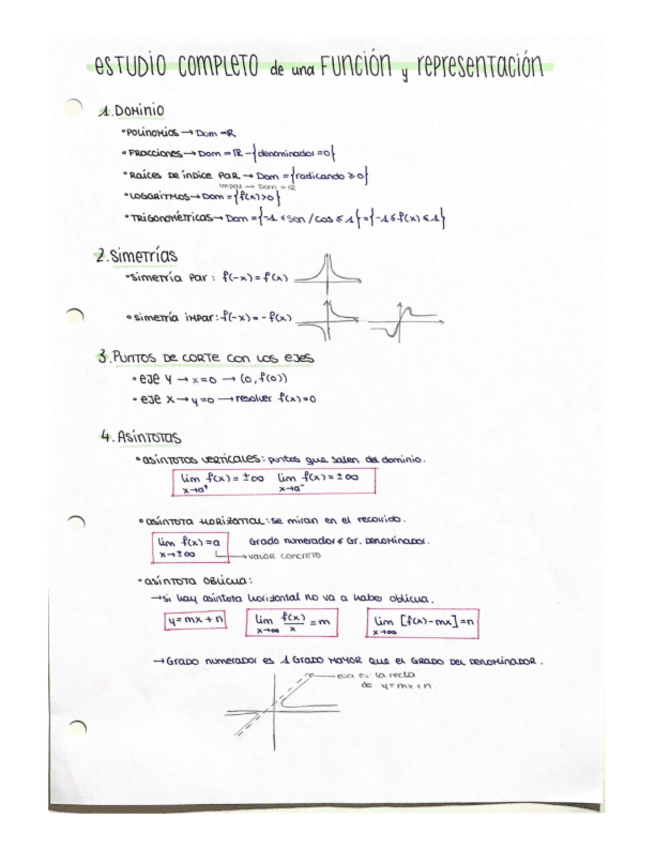 ESTUDIO COMPLETO de una FUNCIÓN y representación
1. Dominio
• Polinomios → Dom = ℝ
• Fracciones → Dom = ℝ - {denominador = 0}
• Raíces de índice par → Dom = {radicando ≥ 0}
impar → Dom = ℝ
• Logaritmos → Dom = {f(x) > 0}
• Trigonométricas → Dom = {-1 ≤ sen / cos ≤ 1} = {-1 ≤ f(x) ≤ 1}
2. Simetrías
• Simetría par : f(-x) = f(x)
• Simetría impar : f(-x) = - f(x)
3. Puntos de corte con los ejes
• eje y → x = 0 → (0, f(0))
• eje x → y = 0 → resolver f(x) = 0
4. Asíntotas
• asíntotas verticales : puntos que salen del dominio.
lim f(x) = ±∞ lim f(x) = ±∞
x→a⁺ x→a⁻
• asíntota horizontal : se miran en el recorrido.
lim f(x) = a Grado numerador ≤ Gr. denominador.
x→±∞ → valor concreto
• asíntota oblicua :
→ si hay asíntota horizontal no va a haber oblicua.
y = mx + n lim f(x)/x = m lim [f(x) - mx] = n
x→∞ x→∞
→ Grado numerador es 1 grado mayor que el grado del denominador.
esa es la recta
de y = mx + n.